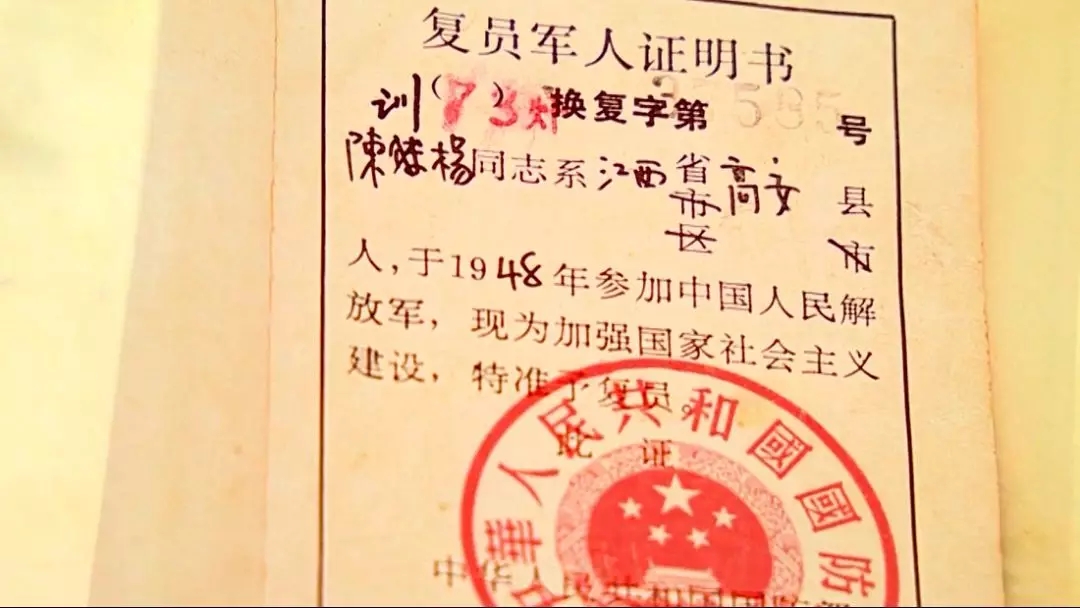 复员军人证明书
训(73) 换复字第 595 号
陳 楊同志系江西省市区高安县市
人,于1948年参加中国人民解
放军,现为加强国家社会主义
建设,特准予复员。
此证
中华人民共和国国防部
中華人民共和國國防